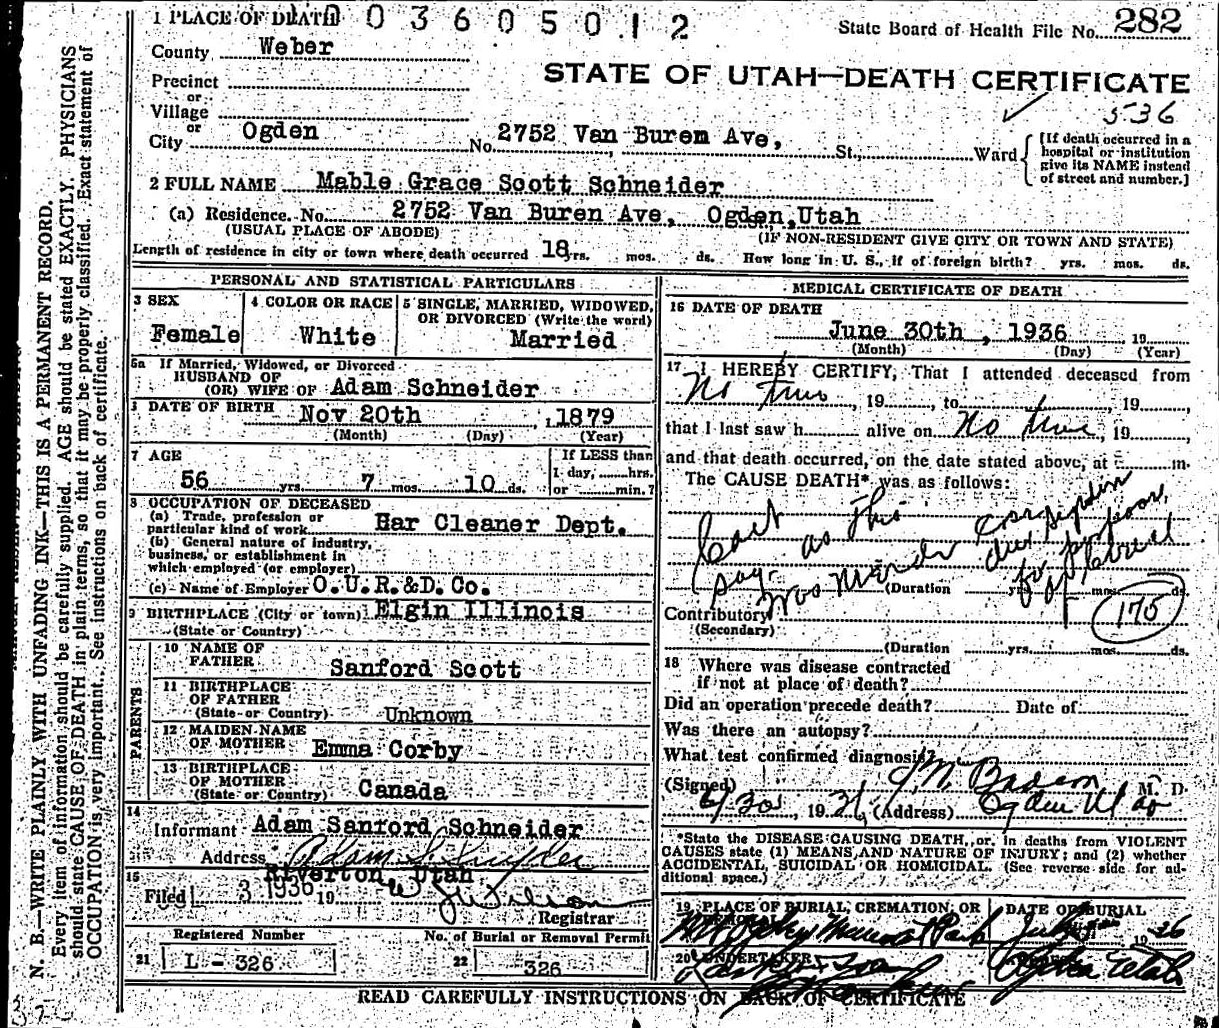 1 PLACE OF DEATH 0 0 3 6 0 5 0 1 2
State Board of Health File No. 282
County Weber
STATE OF UTAH—DEATH CERTIFICATE
Precinct
or
Village
536
or
City Ogden No. 2752 Van Buren Ave, St., Ward
[If death occurred in a
hospital or institution
give its NAME instead
of street and number.]
2 FULL NAME Mable Grace Scott Schneider
(a) Residence. No. 2752 Van Buren Ave, Ogden, Utah
(USUAL PLACE OF ABODE) (IF NON-RESIDENT GIVE CITY OR TOWN AND STATE)
Length of residence in city or town where death occurred 18 yrs. mos. ds. How long in U. S., if of foreign birth? yrs. mos. ds.
PERSONAL AND STATISTICAL PARTICULARS
3 SEX
Female
4 COLOR OR RACE
White
5 SINGLE, MARRIED, WIDOWED,
OR DIVORCED (Write the word)
Married
5a If Married, Widowed, or Divorced
HUSBAND OF
(OR) WIFE OF Adam Schneider
DATE OF BIRTH Nov 20th , 1879
(Month) (Day) (Year)
7 AGE
56 yrs. 7 mos. 10 ds.
If LESS than
1 day, hrs.
or min.?
8 OCCUPATION OF DECEASED
(a) Trade, profession or
particular kind of work Har Cleaner Dept.
(b) General nature of industry,
business, or establishment in
which employed (or employer)
(c) Name of Employer O.U.R.&D. Co.
9 BIRTHPLACE (City or town) Elgin Illinois
(State or Country)
PARENTS
10 NAME OF
FATHER Sanford Scott
11 BIRTHPLACE
OF FATHER
(State or Country) Unknown
12 MAIDEN NAME
OF MOTHER Emma Corby
13 BIRTHPLACE
OF MOTHER
(State or Country) Canada
14
Informant Adam Sanford Schneider
Address
Riverton, Utah
15
Filed 3 1936 19
Registrar
Registered Number
21 L - 326
No. of Burial or Removal Permit
22 326
MEDICAL CERTIFICATE OF DEATH
16 DATE OF DEATH
June 30th , 1936 19
(Month) (Day) (Year)
17 I HEREBY CERTIFY, That I attended deceased from
No time, 19 , to , 19 ,
that I last saw h alive on No time, 19
and that death occurred, on the date stated above, at m.
The CAUSE DEATH* was as follows:
as this
say
was
(Duration yrs. mos. ds.
Contributory
(Secondary)
175
(Duration yrs. mos. ds.
18 Where was disease contracted
if not at place of death?
Did an operation precede death? Date of
Was there an autopsy?
What test confirmed diagnosis?
(Signed) M. D.
6/30, 1936, (Address) Ogden Utah
*State the DISEASE CAUSING DEATH, or, in deaths from VIOLENT
CAUSES state (1) MEANS AND NATURE OF INJURY; and (2) whether
ACCIDENTAL, SUICIDAL OR HOMICIDAL. (See reverse side for ad-
ditional space.)
19 PLACE OF BURIAL, CREMATION, OR
REMOVAL
DATE OF BURIAL
July 19 36
20 UNDERTAKER
Ogden Utah
READ CAREFULLY INSTRUCTIONS ON BACK OF CERTIFICATE
N. B.—WRITE PLAINLY, WITH UNFADING INK—THIS IS A PERMANENT RECORD.
Every item of information should be carefully supplied. AGE should be stated EXACTLY. PHYSICIANS
should state CAUSE OF DEATH in plain terms, so that it may be properly classified. Exact statement of
OCCUPATION is very important. See instructions on back of certificate.